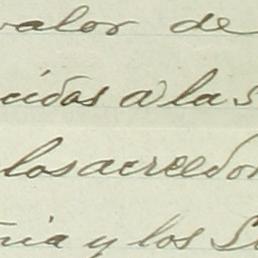 valor de
cidos a las
los acreedor
ria y los